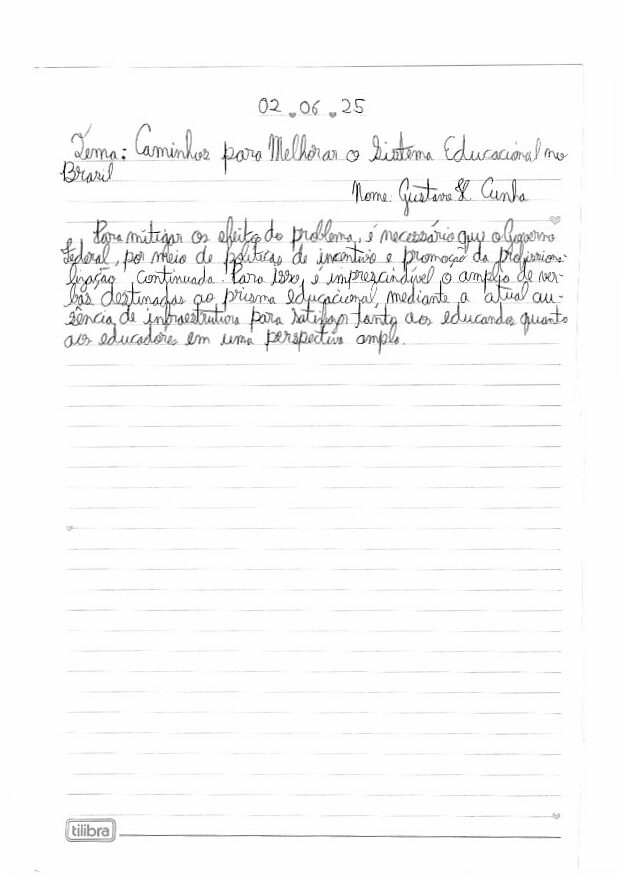 02.06.25
Tema: Caminhos para Melhorar o Sistema Educacional no
Brasil
Nome: Gustavo H. Cunha
Para mitigar os efeitos do problema, é necessário que o Governo
Federal, por meio de políticas de incentivo e promoção da profissiona-
lização continuada. Para isso, é imprescindível o amplejo de ver-
bas destinadas ao prisma educacional, mediante a atual au-
sência de infraestrutura para satisfazer tanto aos educandos quanto
aos educadores em uma perspectiva ampla.
tilibra